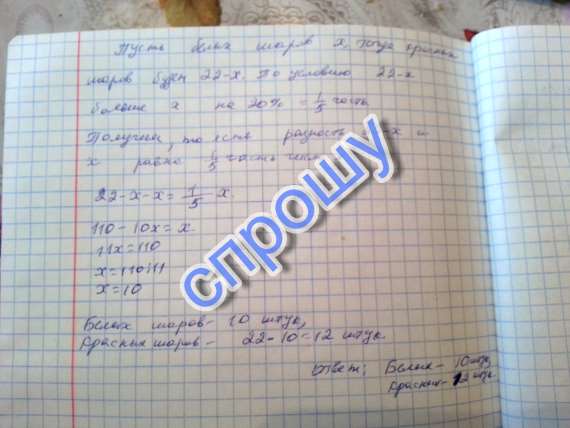 Пусть белых шаров х, тогда красных
шаров будет 22-х. По условию 22-х
больше х на 20% = 1/5 часть.
Получим, то есть разность -х и
х равна 1/5 часть
22-х-х = 1/5 х.
110-10х=х
11х=110
х=110:11
х=10
Белых шаров- 10 штук,
Красных шаров- 22-10=12 штук.
Ответ: Белых- 10 штук
Красных- 12 штук.
спрошу